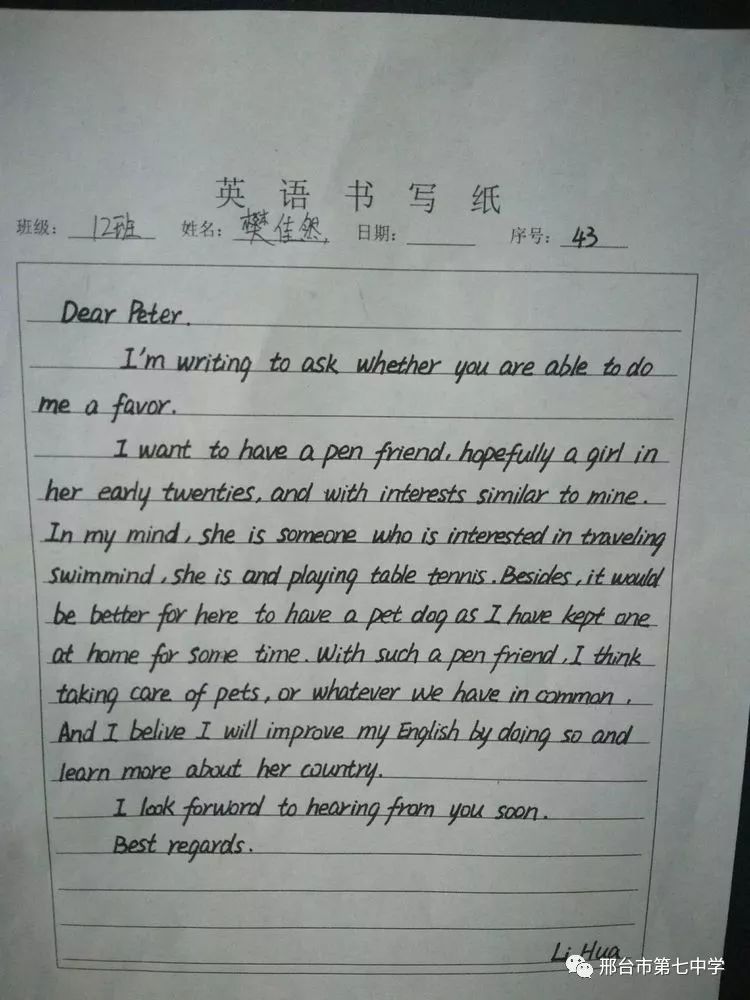 英语书写纸
班级: 12班 姓名: 樊佳然, 日期: 序号: 43
Dear Peter.
I'm writing to ask whether you are able to do
me a favor.
I want to have a pen friend, hopefully a girl in
her early twenties, and with interests similar to mine.
In my mind, she is someone who is interested in traveling
swimmind, she is and playing table tennis. Besides, it would
be better for here to have a pet dog as I have kept one
at home for some time. With such a pen friend, I think
taking care of pets, or whatever we have in common.
And I belive I will improve my English by doing so and
learn more about her country.
I look forword to hearing from you soon.
Best regards.
Li Hua
邢台市第七中学